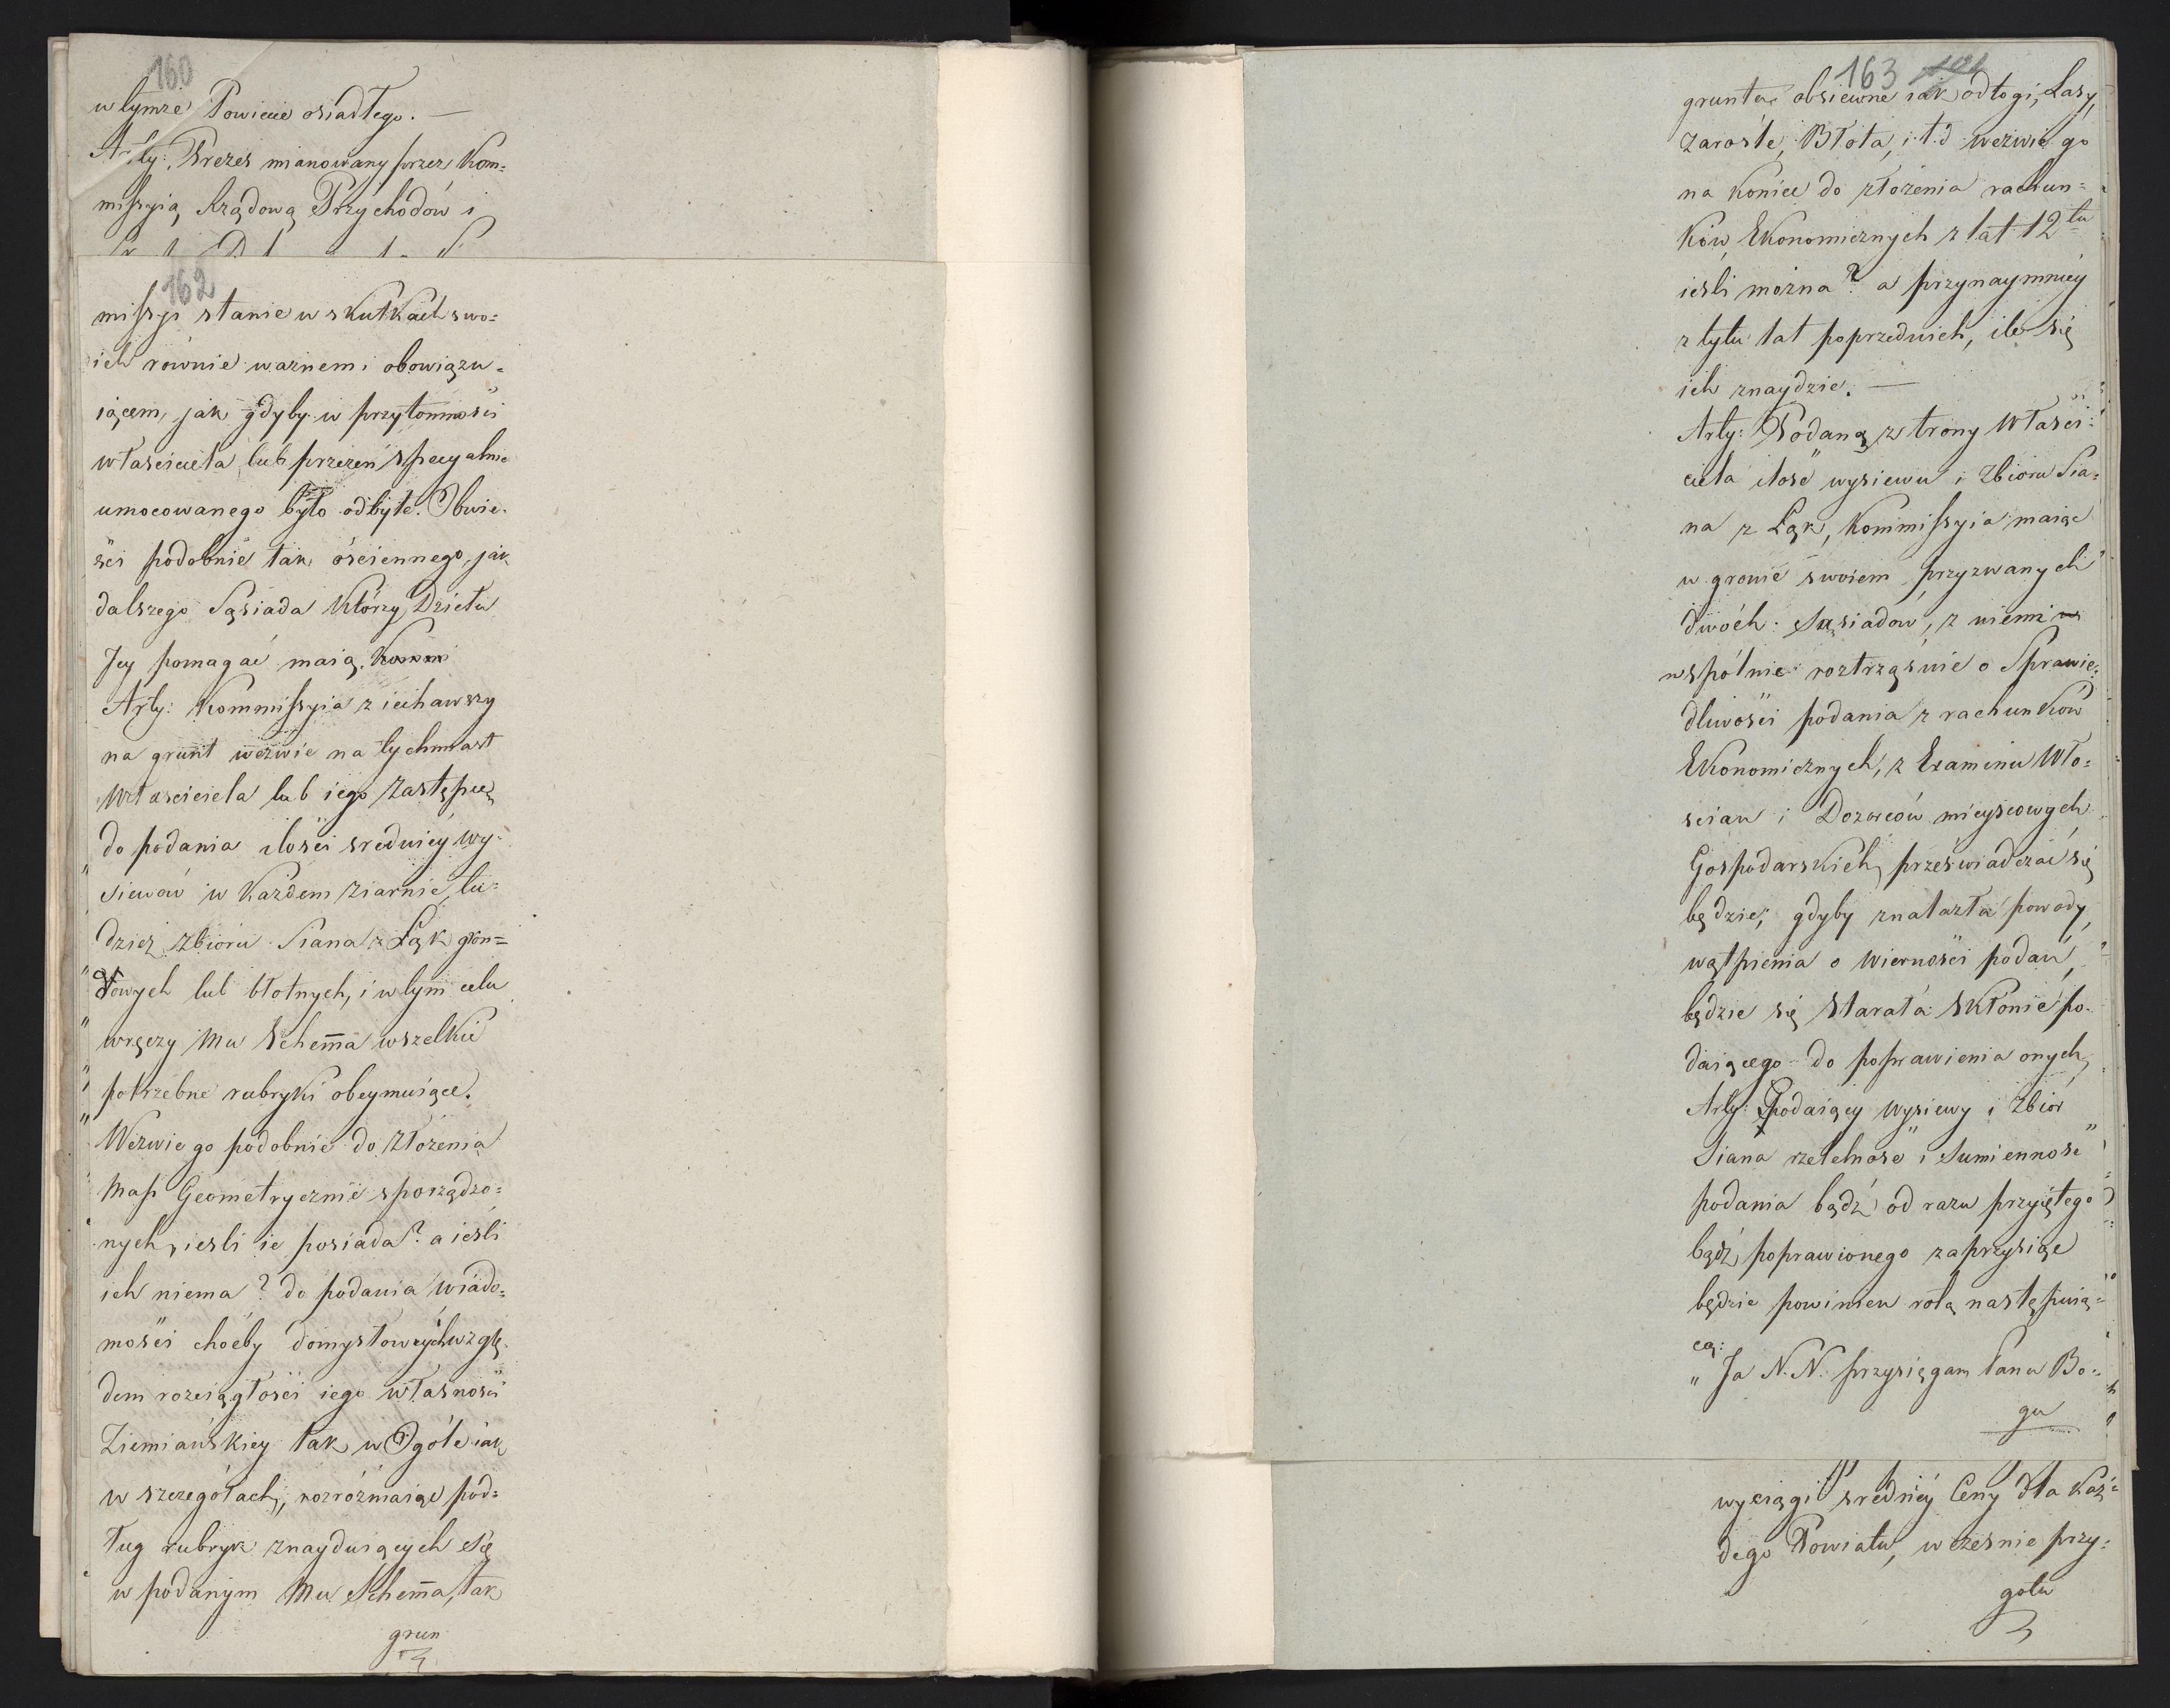 160
w tymze Powiecie osiadłego. —
Arty: Prezes mianowany przez Kom-
missyią Rządową Przychodów i
162
missyi stanie w skutkach swo=
ich równie ważnem i obowiązu=
iącem, jak gdyby w przytomności
właściciela lub przezeń specyalnie
umocowanego było odbyte. Obwie-
ści podobnie tak ościennego, jak
dalszego Sąsiada Którzy Dziełu
Jey pomagać maią.
Arty: Kommissyia ziechawszy
na grunt wezwie natychmiast
Właściciela lub iego Zastępcę
do podania ilości sredniéy wy-
siewów w Każdem ziarnie, tu-
dzież zbioru Siana z Łąk gron=
dowych lub błotnych, i w tym celu
wręczy Mu Schem̄a wszelkie
potrzebne rubryki obeymuiące.
Wezwie go podobnie do złożenia
Map Geometrycznie sporządzo=
nych, iesli ie posiada? a iesli
ich niema? do podania wiado=
mości choćby domysłowych wzglę-
dem rozciągłości iego własności
Ziemiańskiey tak w Ogóle iak
w szczegółach, rozróżniaiąc pod=
ług rubryk znayduiących się
w podanym Mu Schem̄a, tak
grun
163
grunta obsiewne iak odłogi, Lasy,
Zarośle, Błota, i.t.d wezwie go
na koniec do złożenia rachun=
ków Ekonomicznych z lat 12tu
iesli można? a przynaymniéy
z tylu lat poprzednich, ile się
ich znaydzie. —
Arty: Podaną z strony Właści=
ciela ilość wysiewu i Zbioru Sia=
na z Łąk, Kommissyia maiąc
w gronie swoiem przyzwanych
dwóch Sąsiadów, z niemi
wspólnie roztrząśnie o Sprawie=
dliwości podania z rachunków
Ekonomicznych, z Examinu Wło=
scian i Dozorców mieyscowych
Gospodarskich, przeświadczać się
będzie, gdyby znalazła powody
wątpienia o wierności podań,
będzie się starała skłonić po-
daiącego do poprawienia onych,
Arty: Podaiący wysiewy i Zbiór
Siana rzetelność i Sumienność
podania bądź od razu przyiętego
bądź poprawionego zaprzysiąc
będzie powinien rotą następuią=
cą:
„ Ja N. N. przysięgam Panu Bo=
gu
wyciągi średniéy Ceny dla Każ=
dego Powiatu, w cześnie przy=
gotu